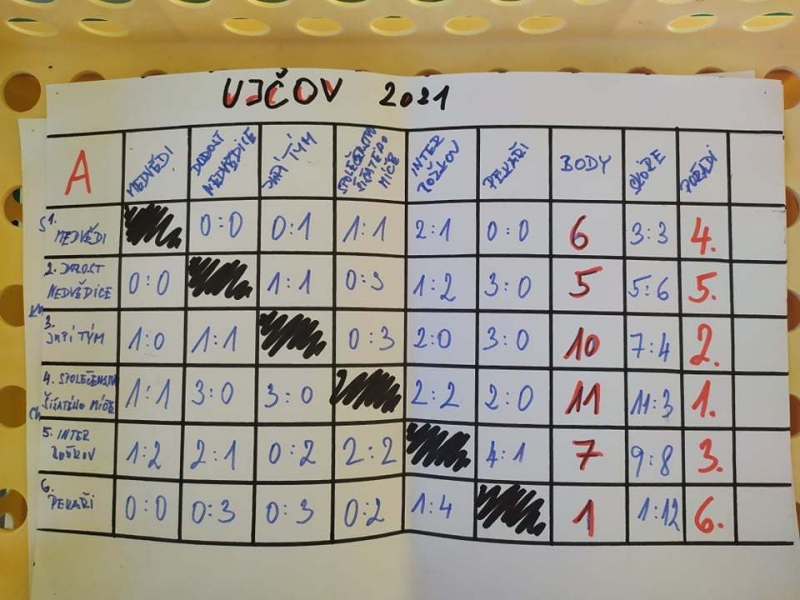 UJČOV 2021
A MEDVĚDI DOROST NEDVĚDICE JAPÍ TÝM SPOLEČENSTVÍ ŠIŠATÉHO MÍČE INTER ROŽKOV PEKAŘI BODY SKÓRE POŘADÍ
1. MEDVĚDI 0:0 0:1 1:1 2:1 0:0 6 3:3 4.
2. DOROST NEDVĚDICE 0:0 1:1 0:3 1:2 3:0 5 5:6 5.
3. JAPÍ TÝM 1:0 1:1 0:3 2:0 3:0 10 7:4 2.
4. SPOLEČENSTVÍ ŠIŠATÉHO MÍČE 1:1 3:0 3:0 2:2 2:0 11 11:3 1.
5. INTER ROŽKOV 1:2 2:1 0:2 2:2 4:1 7 9:8 3.
6. PEKAŘI 0:0 0:3 0:3 0:2 1:4 1 1:12 6.